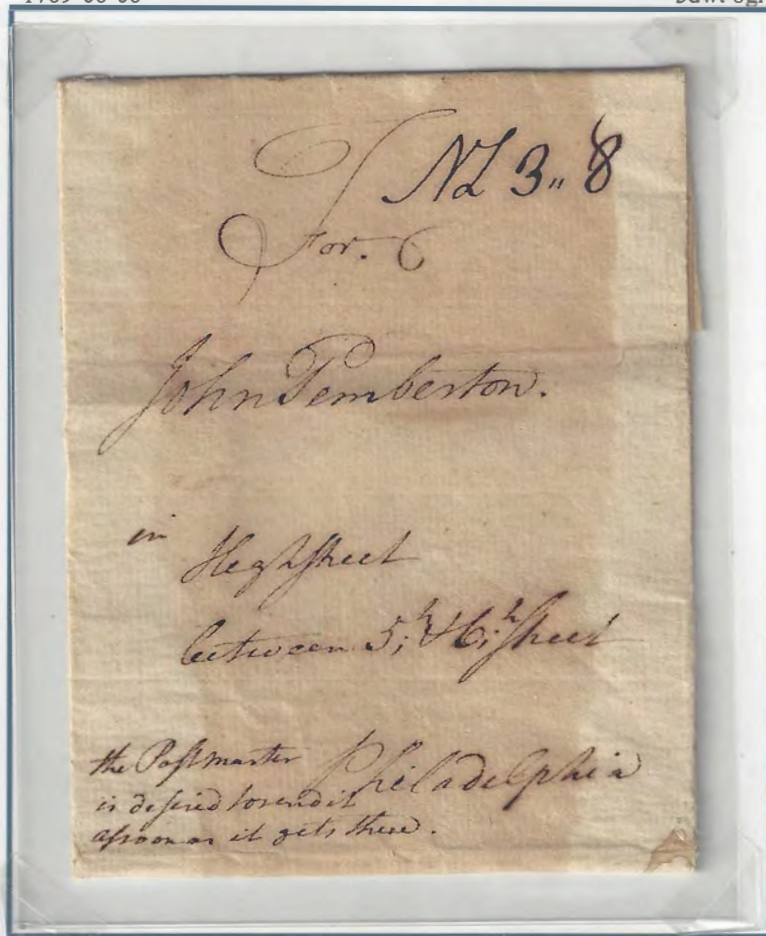 NL 3„ 8
For.
John Pemberton.
in
High Street
between 5th & 6th Street
Philadelphia
the Postmaster
is desired to send it
assoon as it gets there.